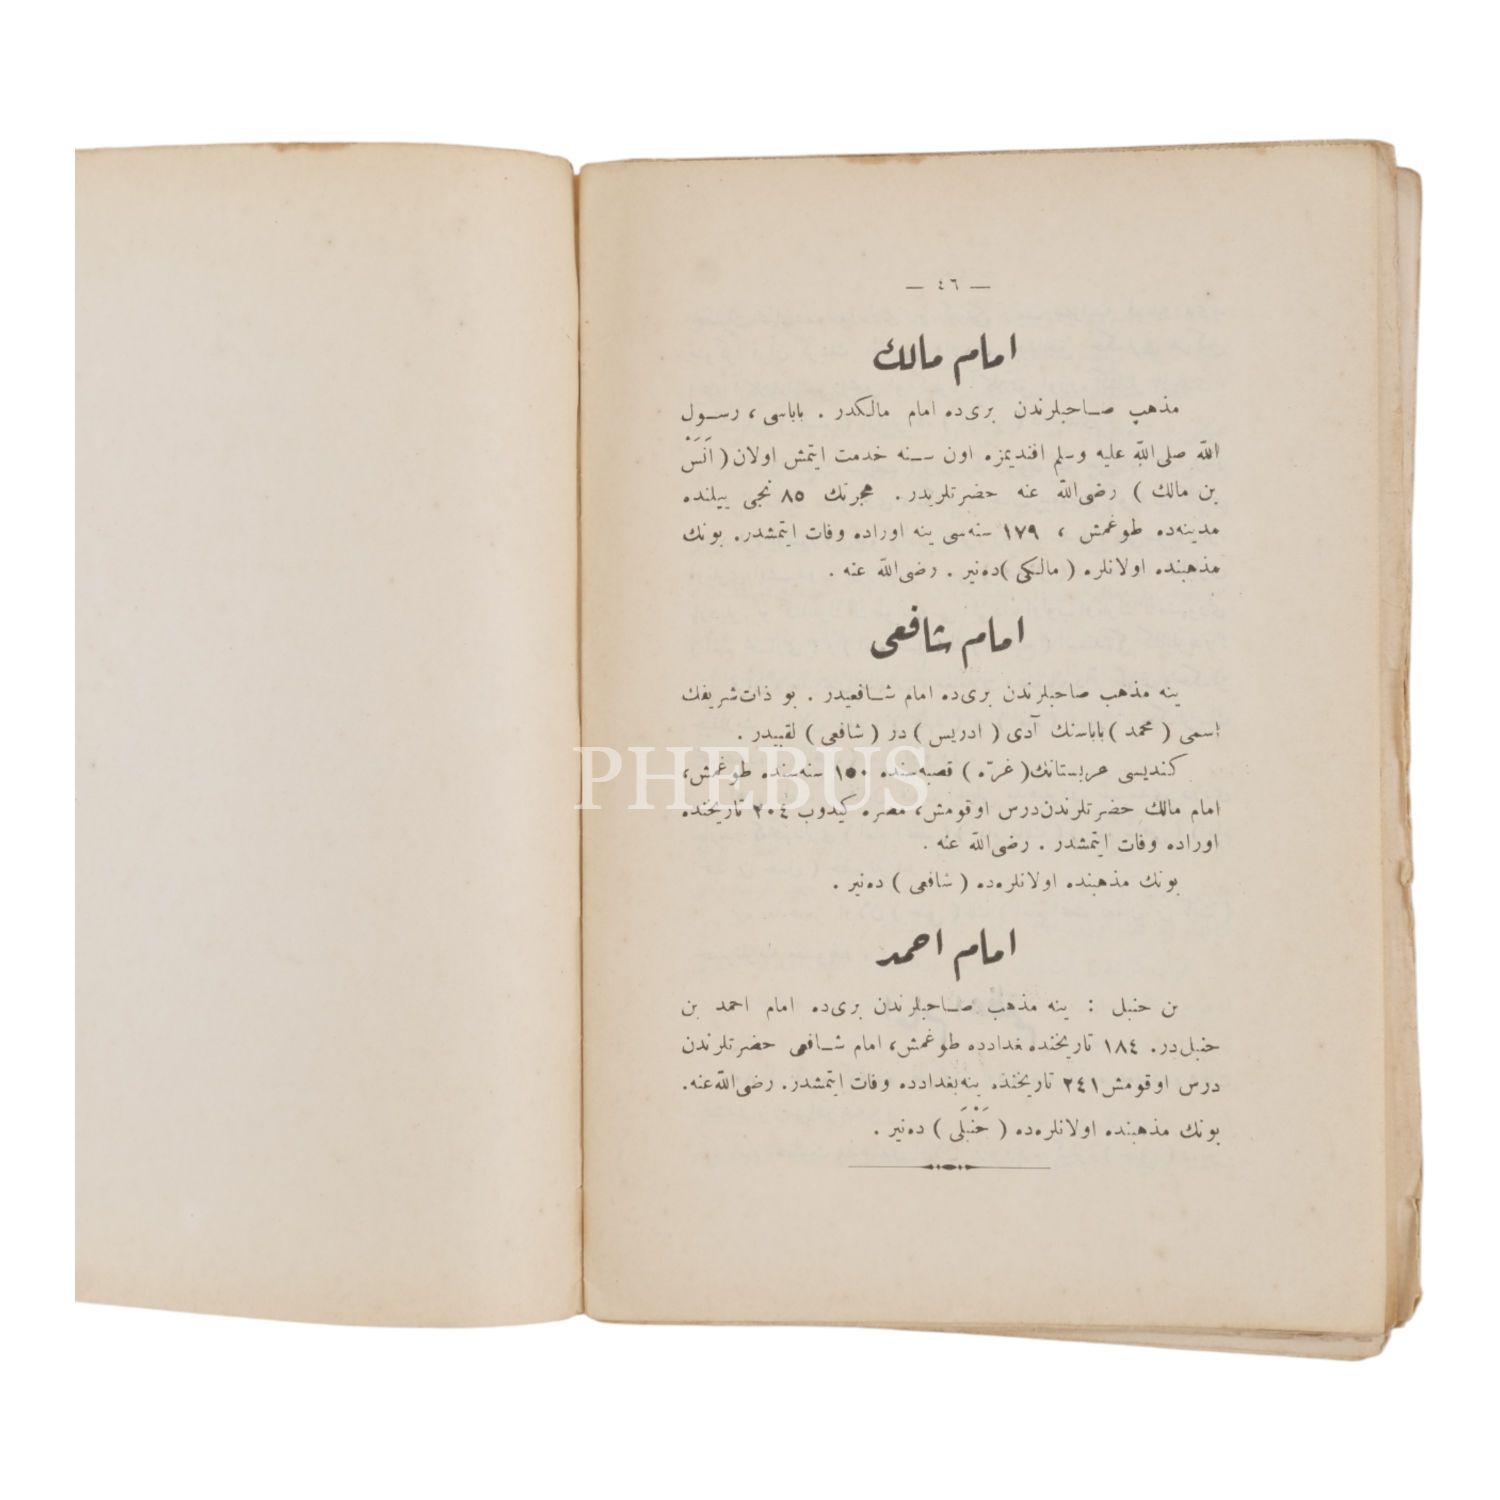 — ٤٦ —
امام مالك
مذهب صاحبلرندن بری‌ده امام مالكدر . باباسی ، رسول
الله صلی‌الله علیه وسلم افندیمزه اون سنه خدمت ایتمش اولان ( اَنَسْ
بن مالك ) رضی‌الله عنه حضرتلریدر . هجرتك ٨٥ نجی ییلنده
مدینه‌ده طوغمش ، ١٧٩ سنه‌سی ینه اوراده وفات ایتمشدر. بونك
مذهبنده اولانلره ( مالكی ) ده‌نیر . رضی‌الله عنه .
امام شافعی
ینه مذهب صاحبلرندن بری‌ده امام شافعیدر . بو ذات‌شریفك
اسمی ( محمد ) باباسنك آدی ( ادریس ) در ( شافعی ) لقبیدر .
كندیسی عربستانك ( غزّه ) قصبه‌سنده ١٥٠ سنه‌سنده طوغمش،
امام مالك حضرتلرندن درس اوقومش، مصره كیدوب ٢٠٤ تاریخنده
اوراده وفات ایتمشدر . رضی‌الله عنه .
بونك مذهبنده اولانلره‌ده ( شافعی ) ده‌نیر .
امام احمد
بن حنبل : ینه مذهب صاحبلرندن بری‌ده امام احمد بن
حنبل‌در. ١٨٤ تاریخنده غدادده طوغمش، امام شافعی حضرتلرندن
درس اوقومش ٢٤١ تاریخنده ینه بغدادده وفات ایتمشدر. رضی‌الله عنه.
بونك مذهبنده اولانلره‌ده ( حَنْبَلی ) ده‌نیر .
PHEBUS